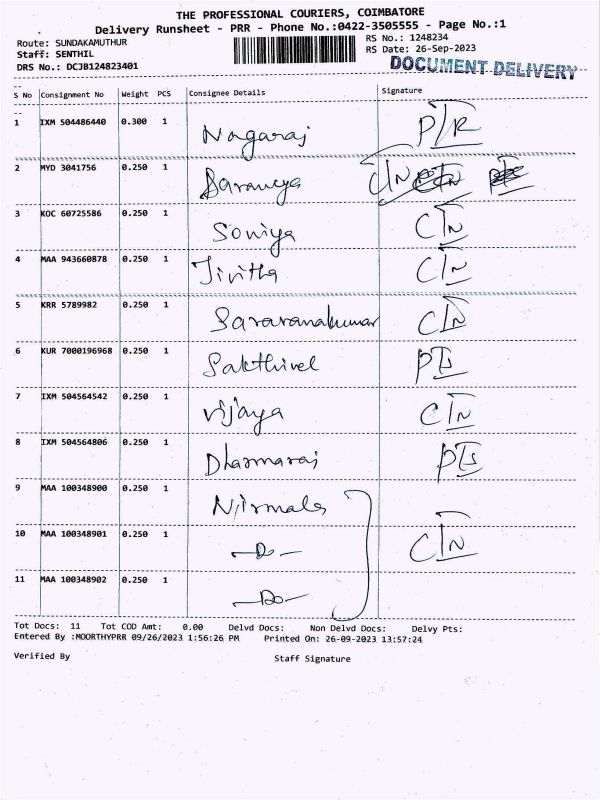 THE PROFESSIONAL COURIERS, COIMBATORE
Delivery Runsheet - PRR - Phone No.:0422-3505555 - Page No.:1
Route: SUNDAKAMUTHUR RS No.: 1248234
Staff: SENTHIL RS Date: 26-Sep-2023
DRS No.: DCJB124823401 DOCUMENT DELIVERY
S No Consignment No Weight PCS Consignee Details Signature
1 IXM 504486440 0.300 1 Nagaraj P/R
2 MYD 3041756 0.250 1 Saranya C/N
3 KOC 60725586 0.250 1 Soniya C/N
4 MAA 943660878 0.250 1 Jivitha C/N
5 KRR 5789982 0.250 1 Saravanakumar C/N
6 KUR 7000196968 0.250 1 Sakthivel
7 IXM 504564542 0.250 1 Vijaya C/N
8 IXM 504564806 0.250 1 Dharmaraj
9 MAA 100348900 0.250 1 Nirmala
10 MAA 100348901 0.250 1 -Do- C/N
11 MAA 100348902 0.250 1 -Do-
Tot Docs: 11 Tot COD Amt: 0.00 Delvd Docs: Non Delvd Docs: Delvy Pts:
Entered By :MOORTHYPRR 09/26/2023 1:56:26 PM Printed On: 26-09-2023 13:57:24
Verified By Staff Signature